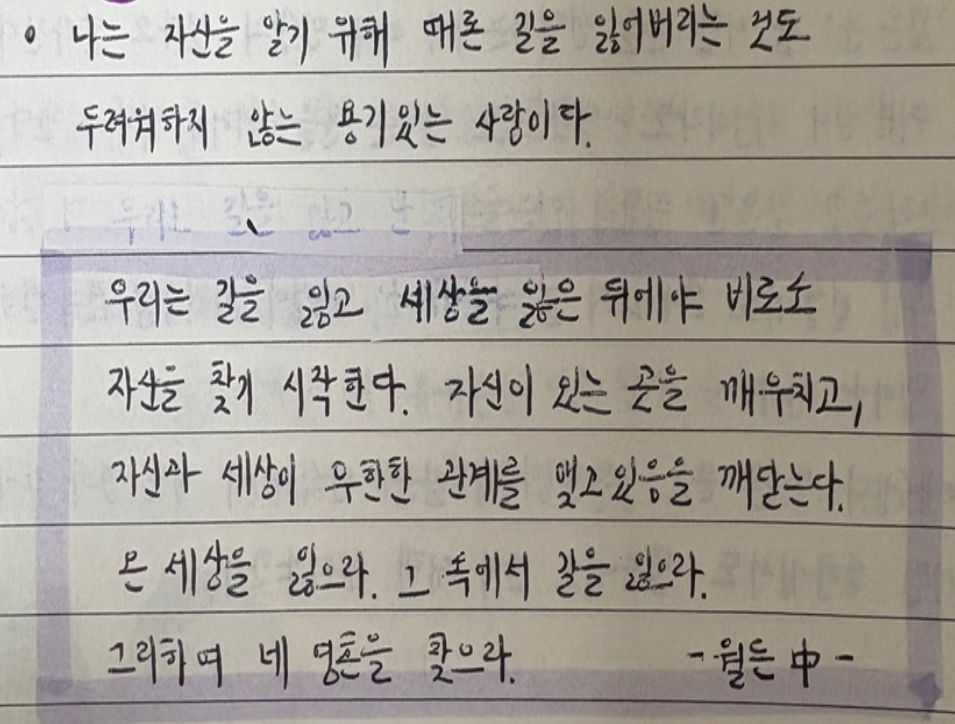 • 나는 자신을 알기 위해 때론 길을 잃어버리는 것도
두려워하지 않는 용기있는 사람이다.
우리는 길을 잃고
우리는 길을 잃고 세상을 잃은 뒤에야 비로소
자신을 찾기 시작한다. 자신이 있는 곳을 깨우치고,
자신과 세상이 무한한 관계를 맺고있음을 깨닫는다.
온 세상을 잃으라. 그 속에서 길을 잃으라.
그리하여 네 영혼을 찾으라. - 월든 中 -